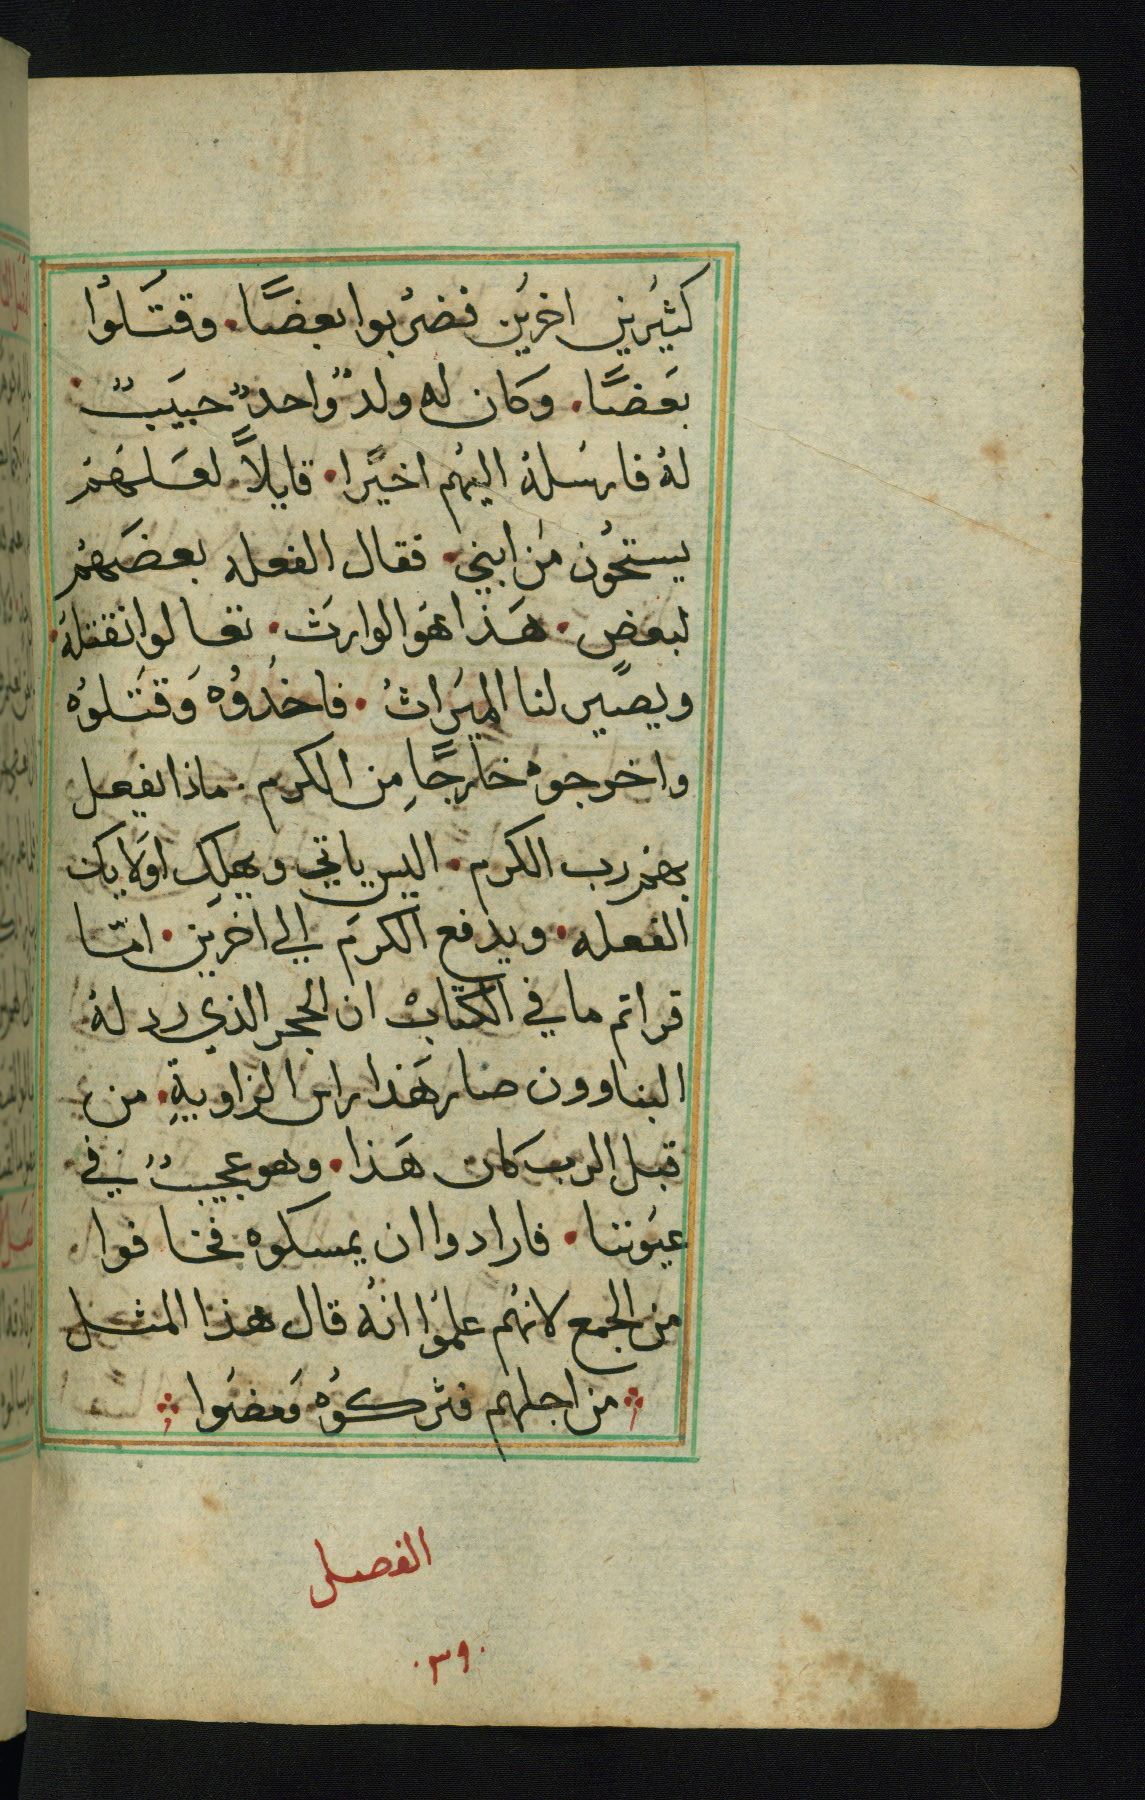 كثيرين اخرين فضربوا بعضًا. وقتلوا
بعضًا. وكان له ولدٌ واحدٌ حبيبٌ.
لهُ فارسلهُ اليهم اخيرًا. قايلاً. لعلهم
يستحون من ابني. فقال الفعله بعضهم
لبعض. هذا هو الوارث. تعالوا نقتله.
ويصير لنا الميراث. فاخدوه وقتلوه
واخرجوه خارجًا من الكرم. ماذا يفعل
بهم رب الكرم. اليس ياتي ويهلك اولايك
الفعله. ويدفع الكرم الي اخرين. امّا
قراتم ما في الكتاب ان الحجر الذي رد له
البناوون صار هذا راس الزاوية. من
قبل الرب كان هذا. وهو عجيبٌ في
عيوننا. فارادوا ان يمسكوه فخافوا
من الجمع لانهم علموا انهُ قال هذا المثل
من اجلهم فتركوه ومضوا
الفصل